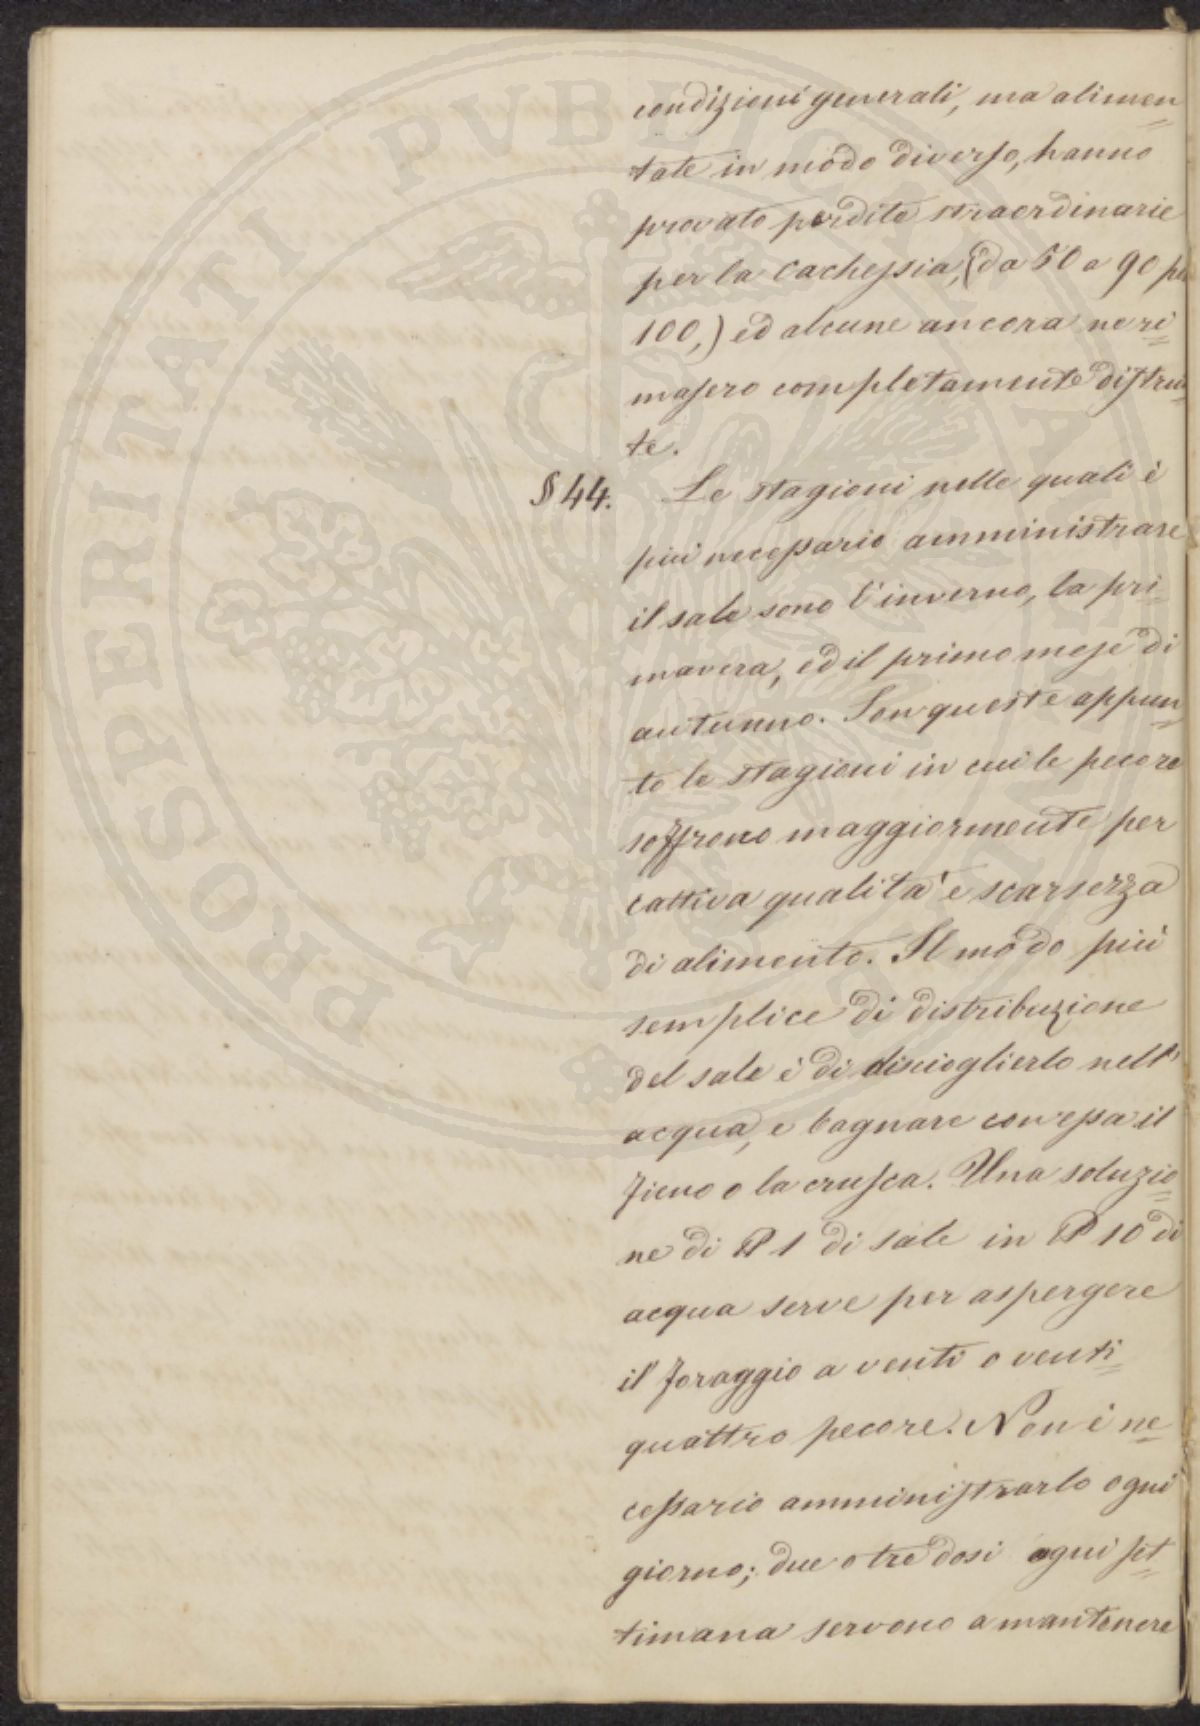 condizioni generali, ma alimen=
tate in modo diverso, hanno
provato perdite straordinarie
per la Cachessia, (da 50 a 90 per
100,) ed alcune ancora ne ri=
masero completamente distrut=
te.
§ 44. Le stagioni nelle quali è
più necessario amministrare
il sale sono l'inverno, la pri=
mavera, ed il primo mese di
autunno. Son queste appun=
to le stagioni in cui le pecore
soffrono maggiormente per
cattiva qualità e scarsezza
di alimento. Il modo più
semplice di distribuzione
del sale è di discioglierlo nell'
acqua, e bagnare con essa il
fieno o la crusca. Una soluzio=
ne di P 1 di sale in P 10 di
acqua serve per aspergere
il foraggio a venti o venti=
quattro pecore. Non è ne=
cessario amministrarlo ogni
giorno; due o tre dosi ogni set=
timana servono a mantenere
PROSPERITATI PVBLICAE